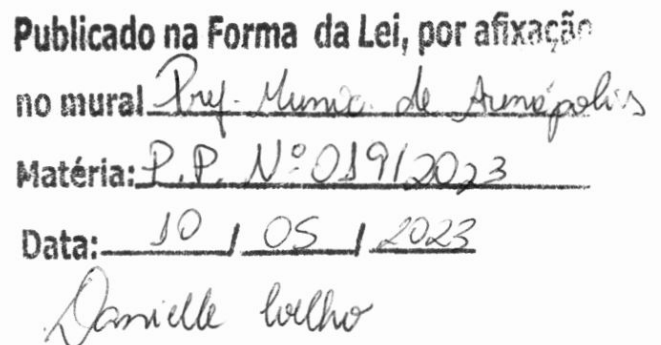 Publicado na Forma da Lei, por afixação
no mural Pref. Munic. de Arenápolis
Matéria: P.P. Nº 019/2023
Data: 10 / 05 / 2023
Danielle Coelho